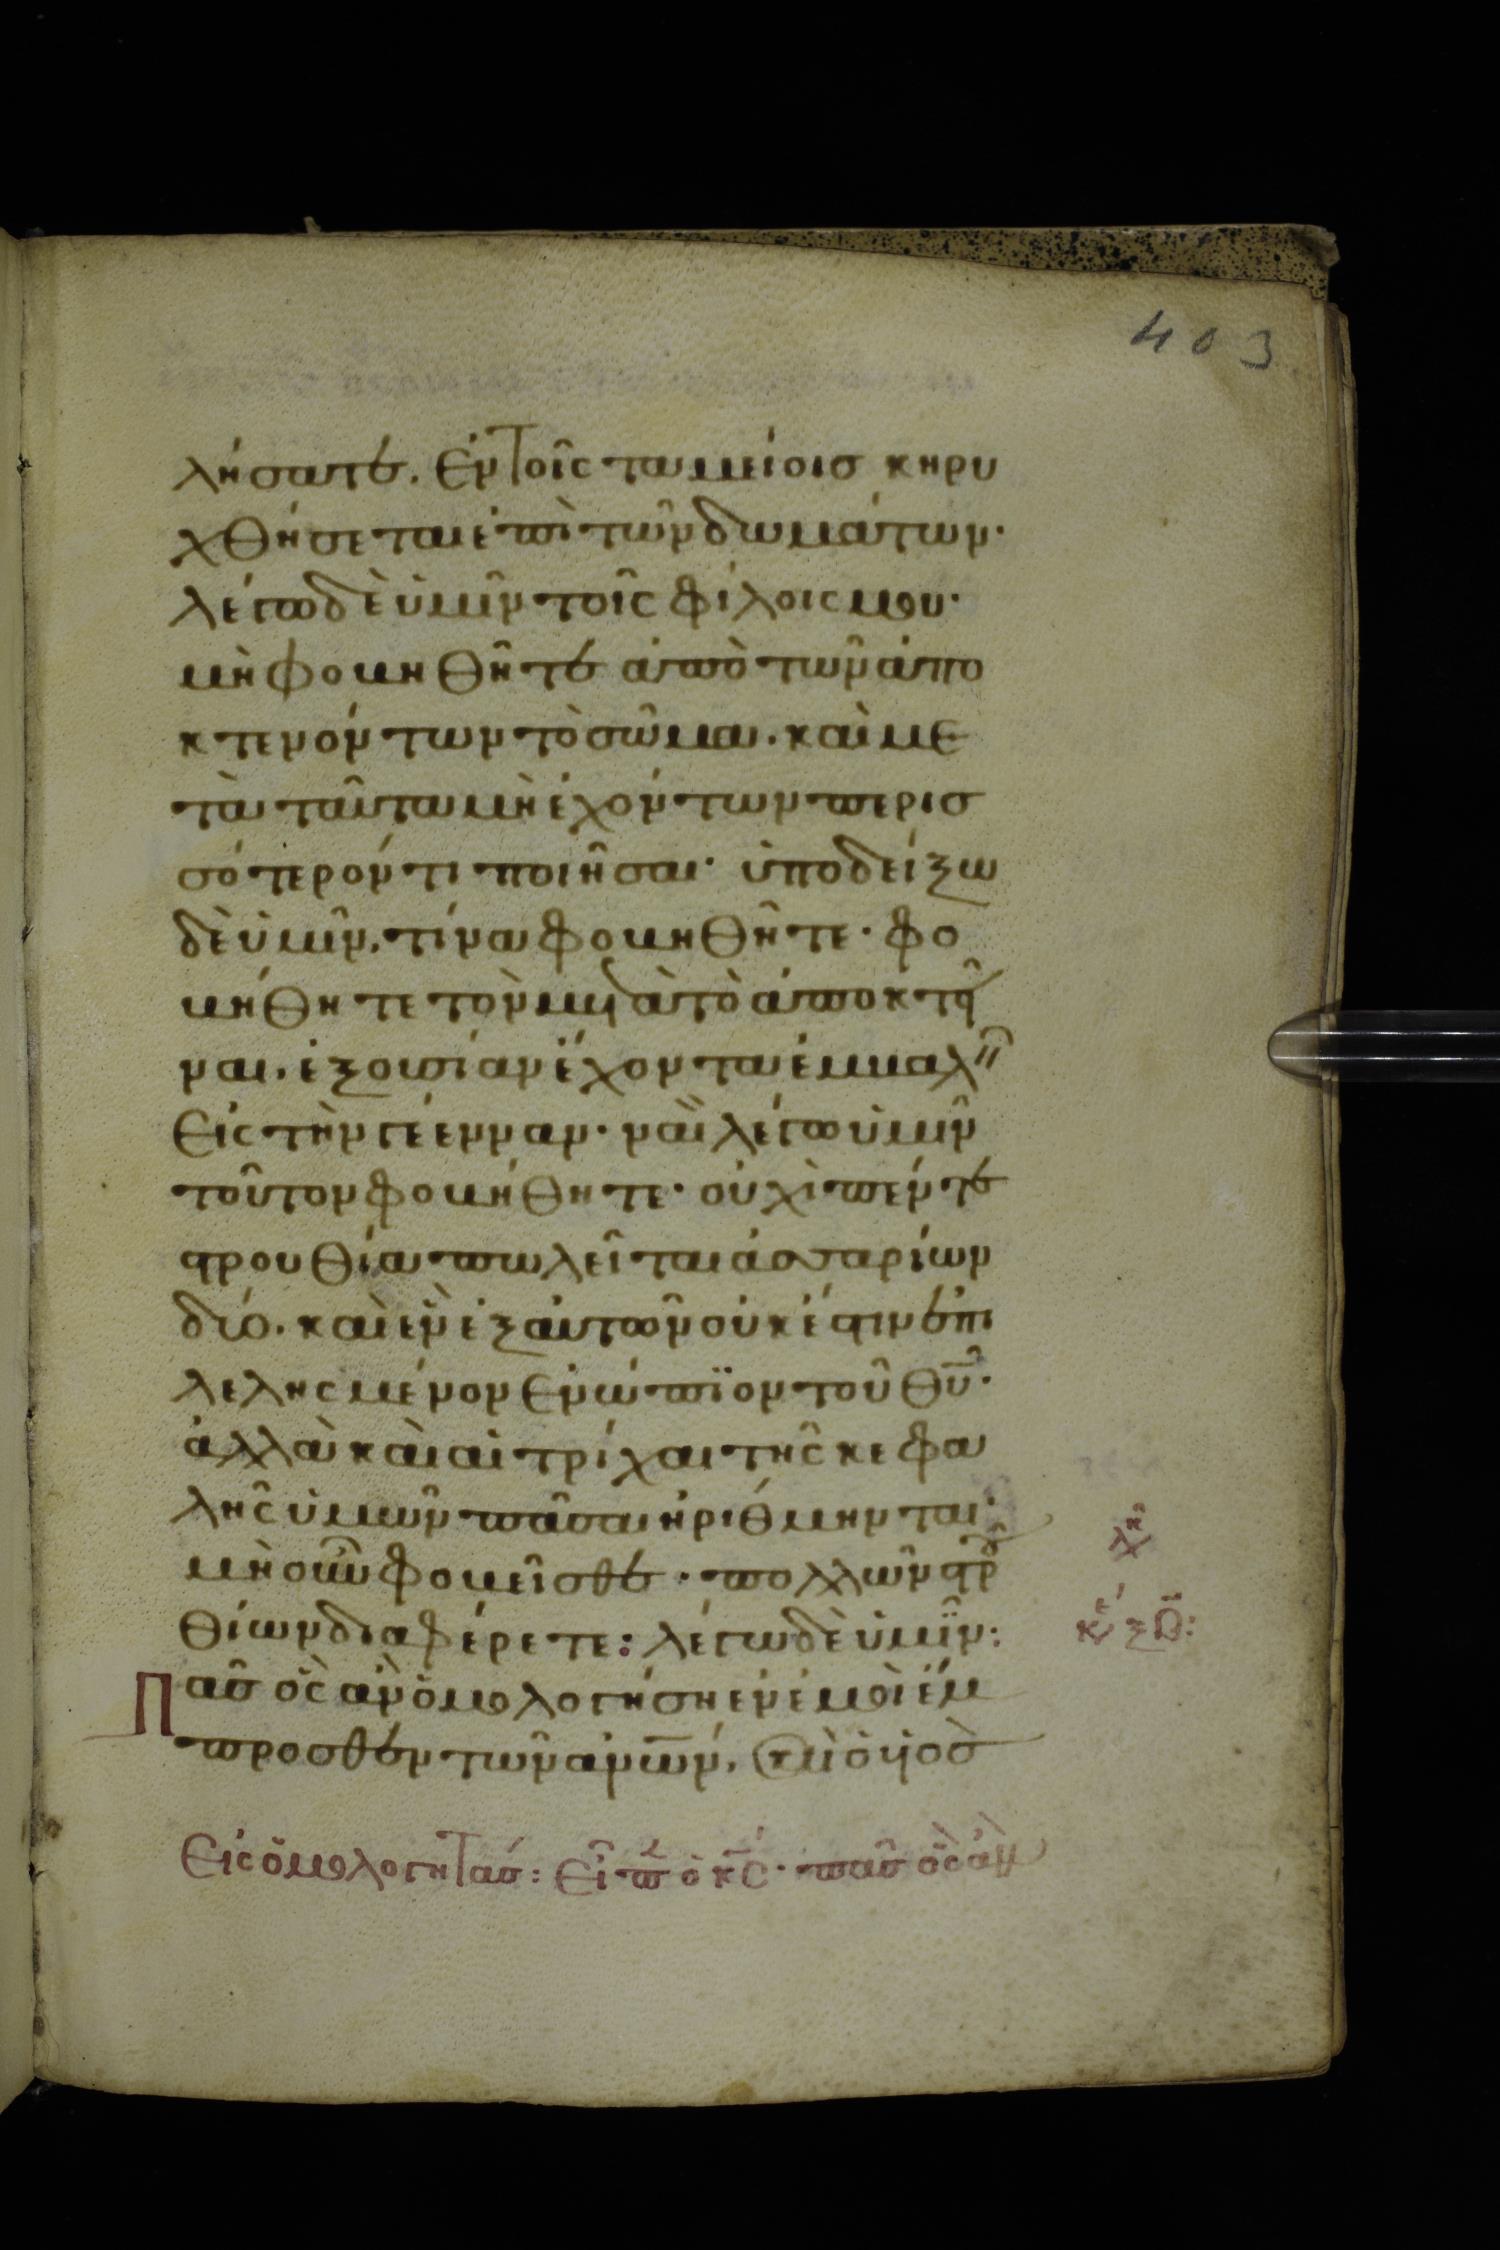 403
λήσατε. ἐν τοῖς ταμείοισ κηρυ
χθήσεται ἐπὶ τῶν δωμάτων·
λέγω δὲ ὑμῖν τοῖς φίλοις μου·
μὴ φοβηθῆτε ἀπὸ τῶν ἀπο
κτενόντων τὸ σῶμα. καὶ με
τὰ ταῦτα μὴ ἐχόντων περισ
σότερόν τι ποιῆσαι· ὑποδείξω
δὲ ὑμῖν, τίνα φοβηθῆτε· φο
βήθητε τὸν μετὰ τὸ ἀποκτεῖ
ναι. ἐξουσίαν ἔχοντα ἐμβαλεῖν
εἰς τὴν γέενναν· ναὶ λέγω ὑμῖν
τοῦτον φοβήθητε· οὐχὶ πέντε
στρουθία πωλεῖται ἀσσαρίων
δύο. καὶ ἓν ἐξ αὐτῶν οὐκ ἔστιν ἐπι
λελησμένον ἐνώπϊον τοῦ θ̅υ̅·
ἀλλὰ καὶ αἱ τρίχαι τῆς κεφα
λῆς ὑμῶν πᾶσαι ἠρίθμηνται·
μὴ οὖν φοβεῖσθε· πολλῶν στρου
θίων διαφέρετε: λέγω δὲ ὑμῖν:
Πᾶσ ὃς ἂν ὁμολογήση ἐν ἐμοὶ ἔμ
προσθεν τῶν ἀν̅ω̅ν, καὶ ὁ υἱὸσ
Εἰς ὁμολογητάσ: εἶπ ὁ κ̅ς̅· πᾶσ ὃς ἂν